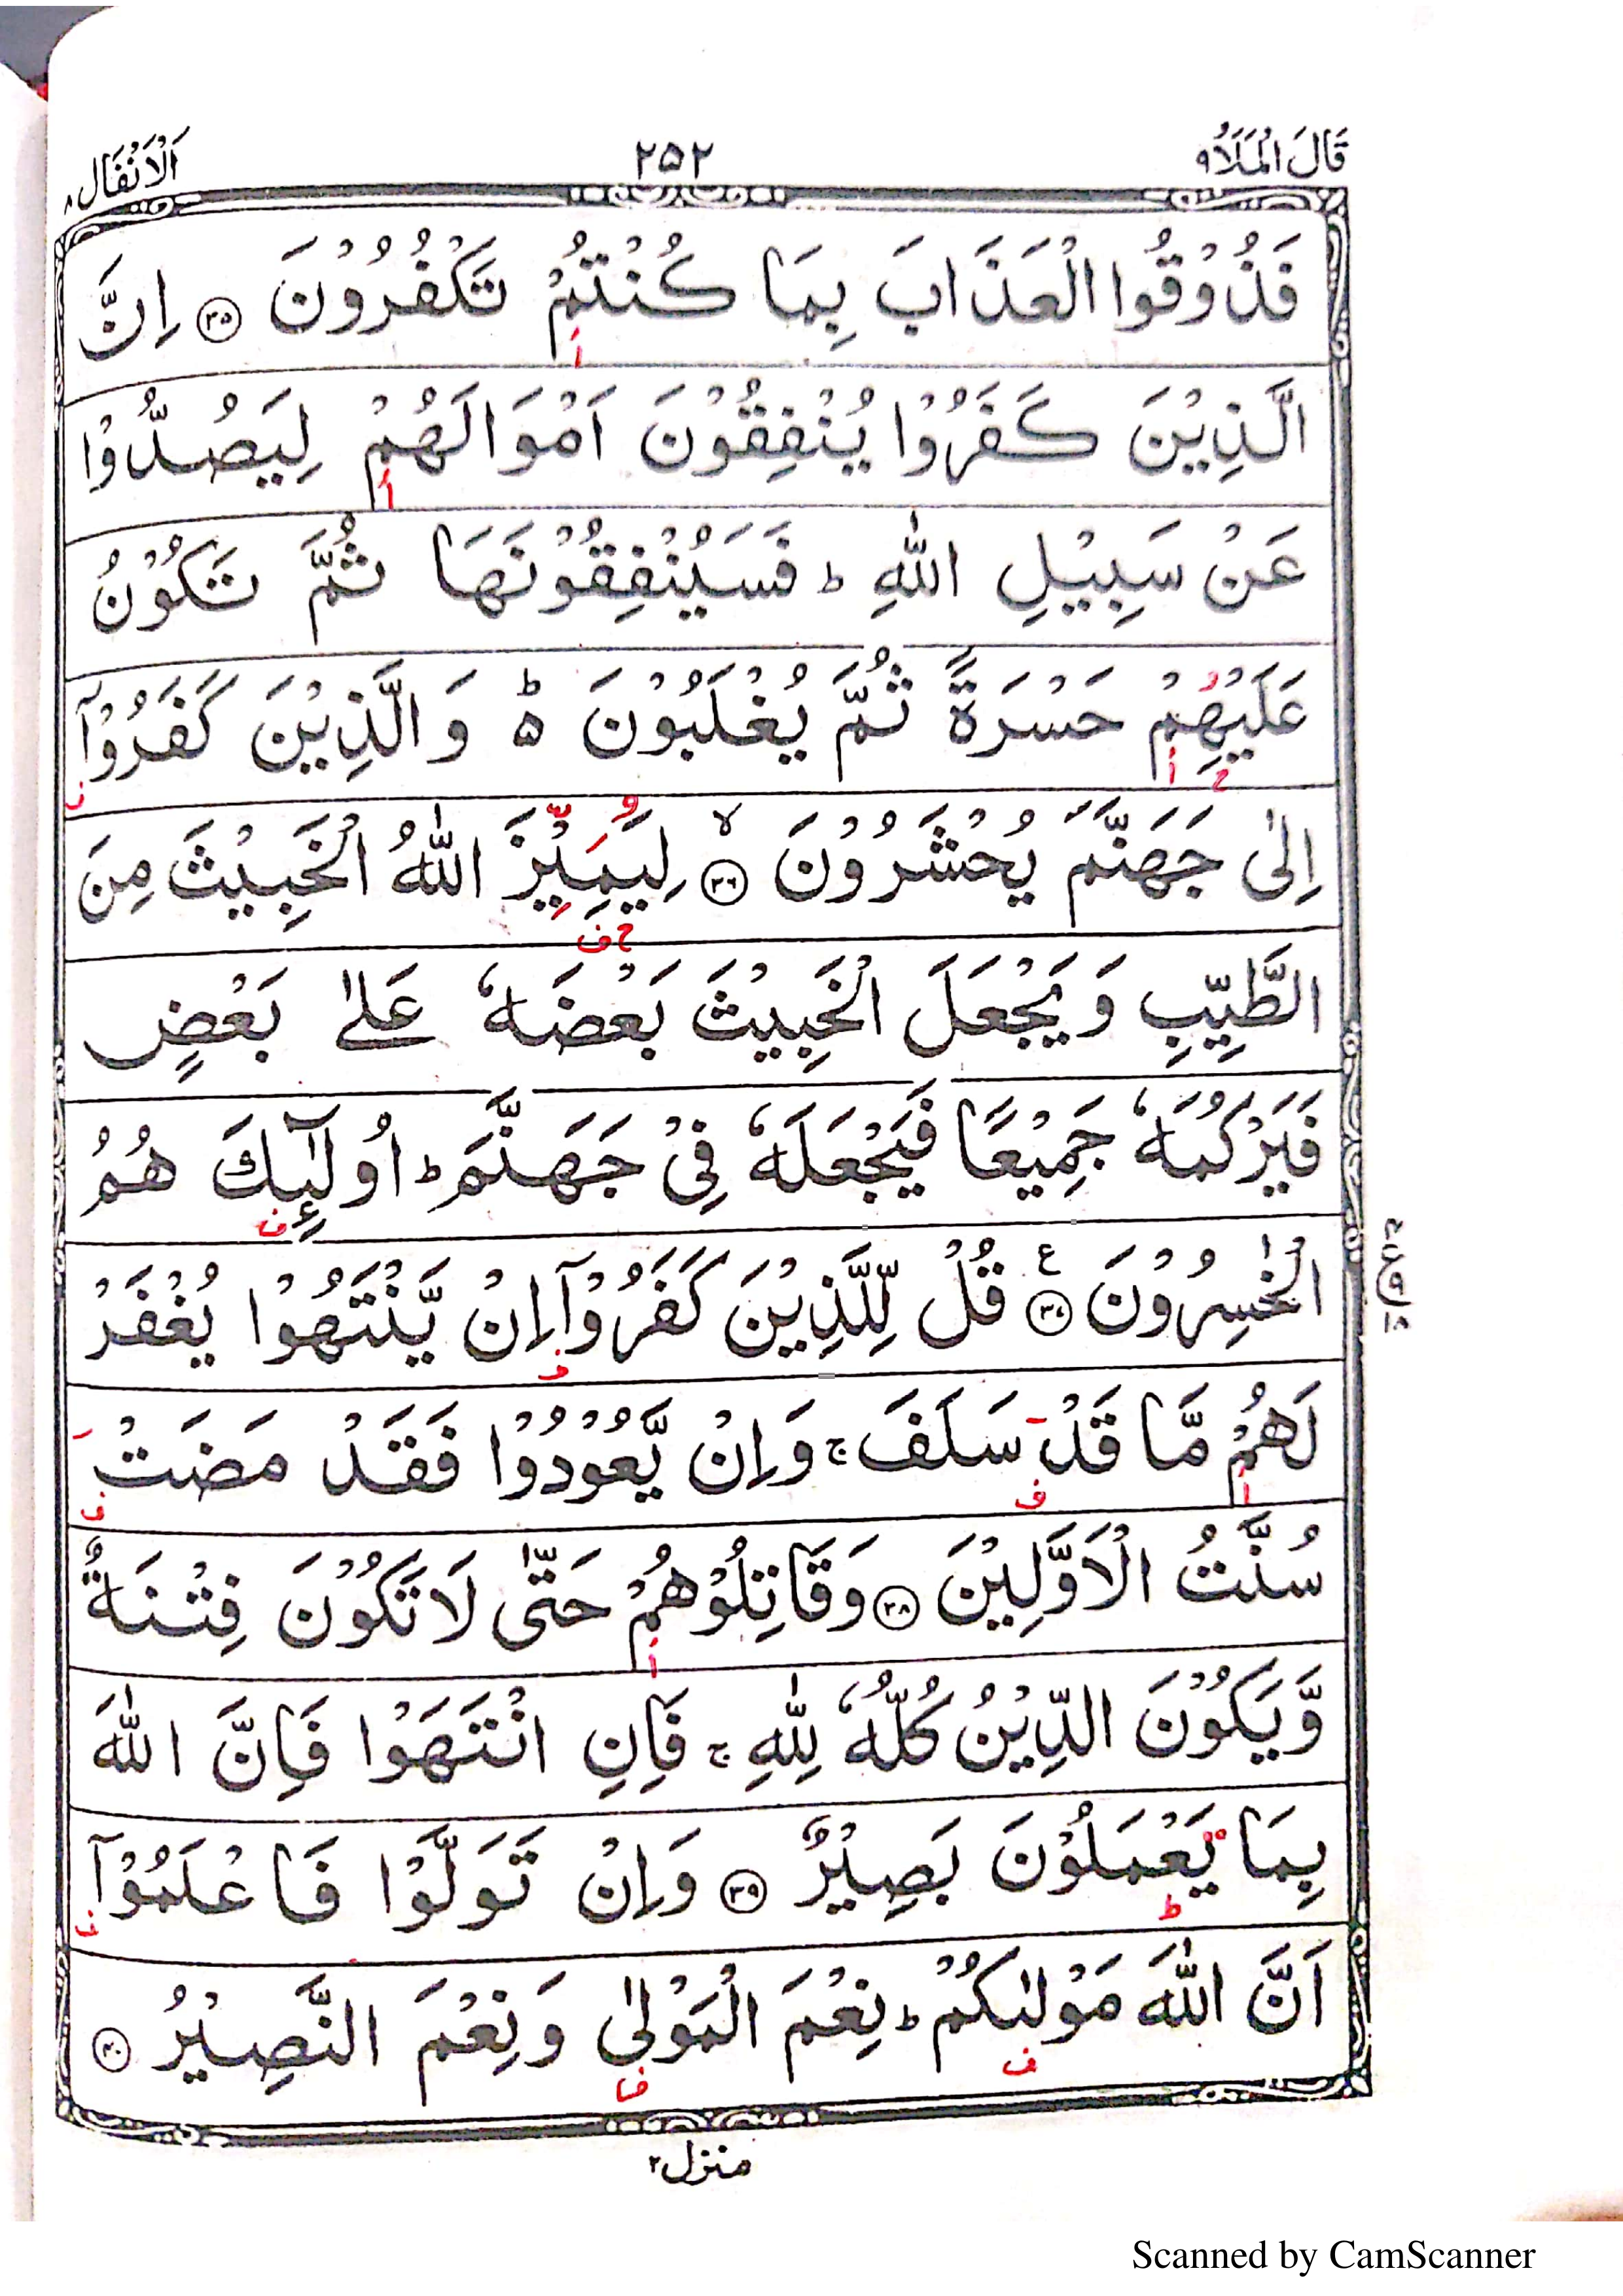 قَالَ الْمَلَاُ ٩ ٢٥٢ اَلْاَنْفَال ٨
فَذُوْقُوا الْعَذَابَ بِمَا كُنْتُمْ تَكْفُرُوْنَ ﴿٣٥﴾ اِنَّ
الَّذِيْنَ كَفَرُوْا يُنْفِقُوْنَ اَمْوَالَهُمْ لِيَصُدُّوْا
عَنْ سَبِيْلِ اللّٰهِ ؕ فَسَيُنْفِقُوْنَهَا ثُمَّ تَكُوْنُ
عَلَيْهِمْ حَسْرَةً ثُمَّ يُغْلَبُوْنَ ۵ؕ وَالَّذِيْنَ كَفَرُوْۤا
اِلٰى جَهَنَّمَ يُحْشَرُوْنَ ۙ﴿٣٦﴾ لِيَمِيْزَ اللّٰهُ الْخَبِيْثَ مِنَ
الطَّيِّبِ وَيَجْعَلَ الْخَبِيْثَ بَعْضَهٗ عَلٰى بَعْضٍ
فَيَرْكُمَهٗ جَمِيْعًا فَيَجْعَلَهٗ فِيْ جَهَنَّمَ ؕ اُولٰٓئِكَ هُمُ
الْخٰسِرُوْنَ ﴿٣٧﴾ ع قُلْ لِّلَّذِيْنَ كَفَرُوْۤا اِنْ يَّنْتَهُوْا يُغْفَرْ
لَهُمْ مَّا قَدْ سَلَفَ ۚ وَاِنْ يَّعُوْدُوْا فَقَدْ مَضَتْ
سُنَّتُ الْاَوَّلِيْنَ ﴿٣٨﴾ وَقَاتِلُوْهُمْ حَتّٰى لَا تَكُوْنَ فِتْنَةٌ
وَّيَكُوْنَ الدِّيْنُ كُلُّهٗ لِلّٰهِ ۚ فَاِنِ انْتَهَوْا فَاِنَّ اللّٰهَ
بِمَا يَعْمَلُوْنَ بَصِيْرٌ ﴿٣٩﴾ وَاِنْ تَوَلَّوْا فَاعْلَمُوْۤا
اَنَّ اللّٰهَ مَوْلٰىكُمْ ؕ نِعْمَ الْمَوْلٰى وَنِعْمَ النَّصِيْرُ ﴿٤٠﴾
منزل ٢
Scanned by CamScanner